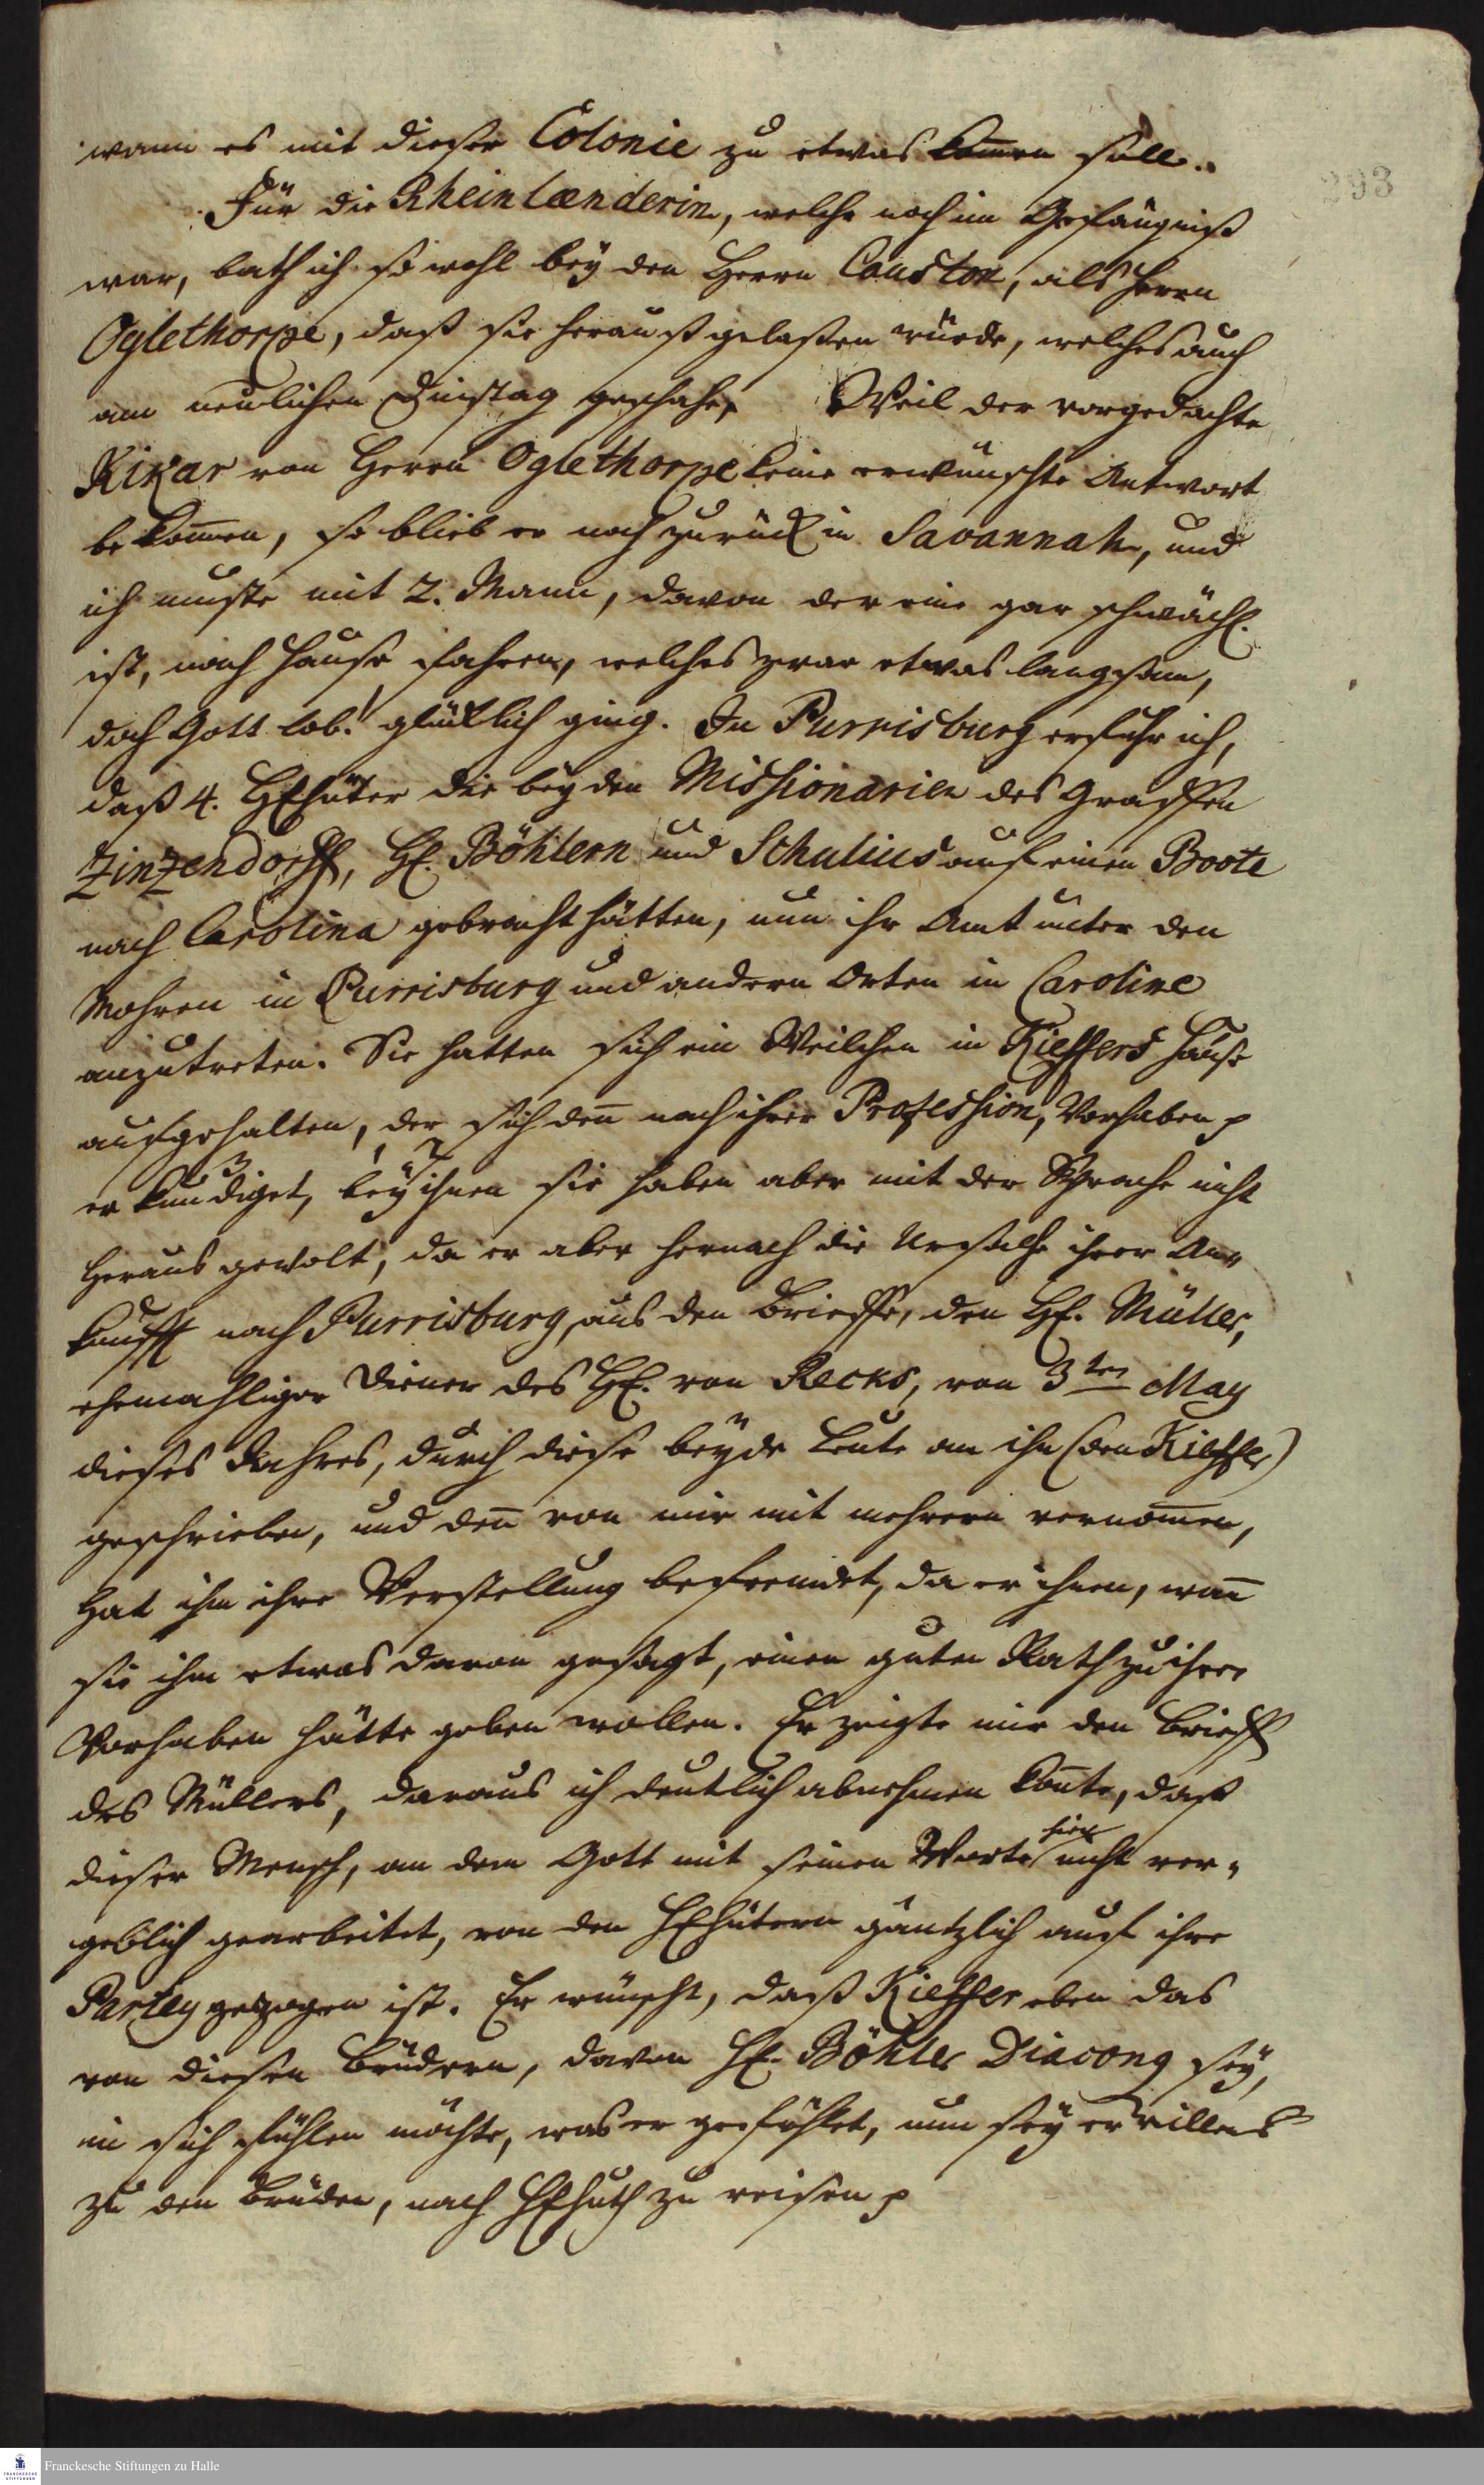 wann es mit dieser Colonie zu etwas kom̄en soll.
293
Für die Rheinlænderin, welche noch im Gefängniß
war, bath ich so wohl bey den Herrn Causton, als Herrn
Oglethorpe, daß sie herauß gelaßen würde, welches auch
am neulichen Dinstag geschahe, Weil der vorgedachte
Rikar von Herrn Oglethorpe keine erwünschte Antwort
bekom̄en, so blieb er noch zurück in Savannah, und
ich muste mit 2. Mann, davon der eine gar schwächl.
ist, nach Hause fahren, welches zwar etwas langsam,
doch Gott lob! glücklich ging. In Purrisburg erfuhr ich,
daß 4. HEhüter die beyden Missionarien des Graffen
Zinzendorff, HE. Böhlern und Schulius auf einen Boote
nach Carolina gebracht hätten, um ihr Amt unter den
Mohren in Purrisburg und andern Orten in Caroline
anzutreten. Sie hatten sich ein Weilchen in Kieffers Hause
aufgehalten, der sich den̄ nach ihrer Profession, Vorhaben p
erkundiget, bey ihnen sie haben aber mit der Sprache nicht
heraus gewolt, da er aber hernach die Ursache ihrer An-
kunfft nach Purrisburg, aus den Brieffe, den HE. Müller,
ehemahliger Diener des HE. von Recks, von 3ten May
dieses Jahres, durch diese beyde Leute an ihn (den Kieffer)
geschrieben, und den̄ von mir mit mehrern vernom̄en,
hat ihn ihre Verstellung befremdet, da er ihnen, wan̄
sie ihm etwas davon gesagt, einen guten Rath zu ihren
Vorhaben hätte geben wollen. Er zeigte mir den Brieff
des Müllers, daraus ich deutlich abnehmen kon̄te, daß
dieser Mensch, an dem Gott mit seinen Worte hier nicht ver-
geblich gearbeitet, von den HEhütern gäntzlich auf ihre
Partey gezogen ist. Er wünscht, daß Kieffer eben das
von diesen Brüdern, davon HE. Böhler Diacong sey,
in sich fühlen möchte, was er gefühlet, nun sey er willens
zu den Brüdern, nach HEhuth zu reisen p
Franckesche Stiftungen zu Halle